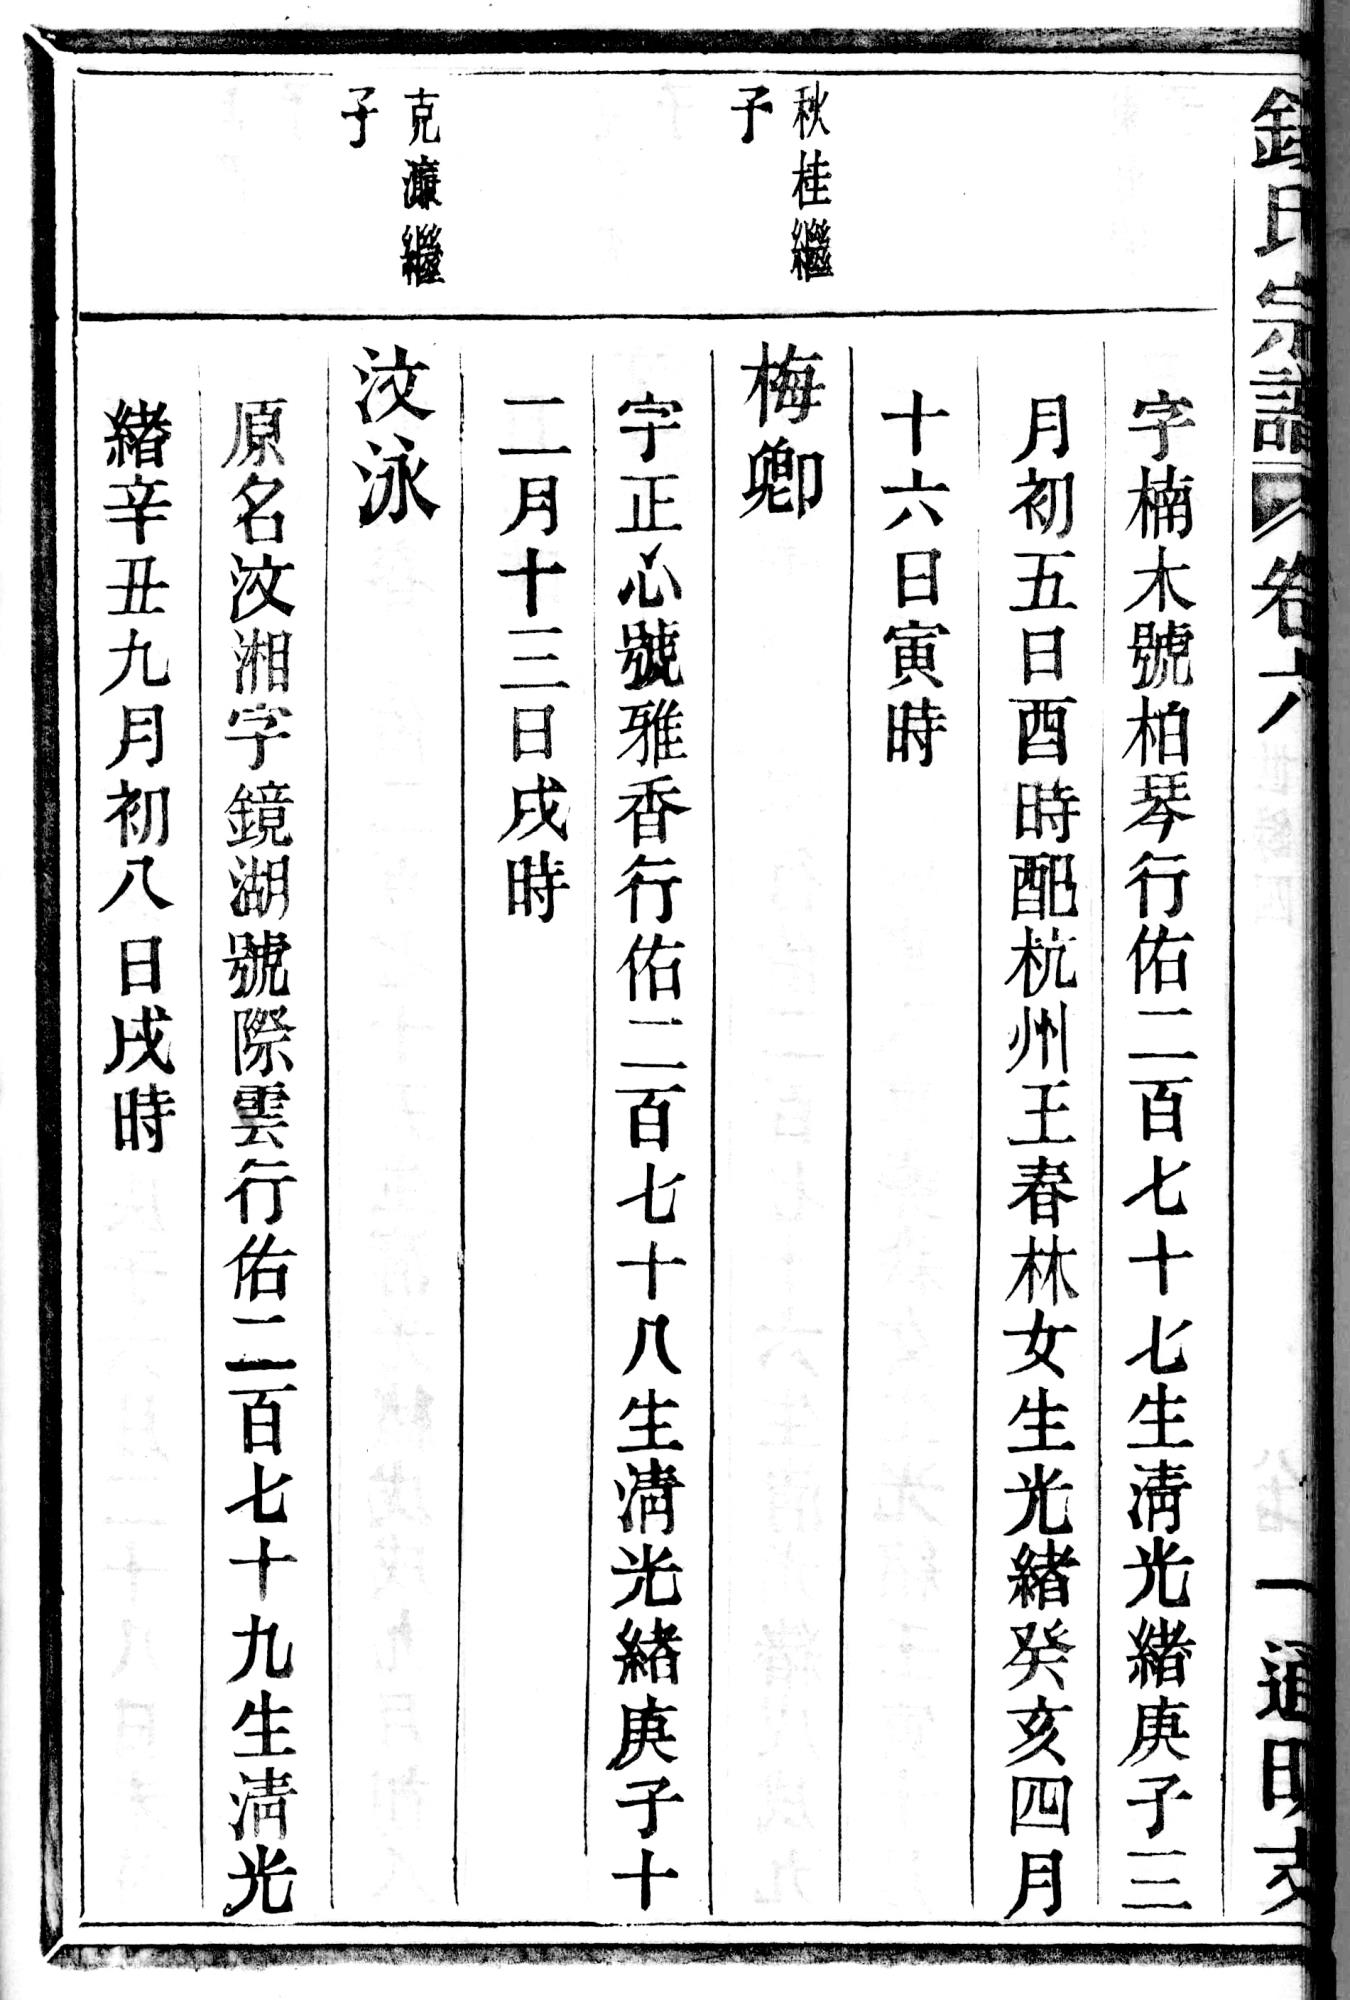 氏宗譜 卷六 一 通明支
字楠木號柏琴行佑二百七十七生淸光緒庚子三
月初五日酉時配杭州王春林女生光緒癸亥四月
十六日寅時
秋桂繼
子
梅卿
字正心號雅香行佑二百七十八生淸光緒庚子十
二月十三日戌時
克濂繼
子
汶泳
原名汶湘字鏡湖號際雲行佑二百七十九生淸光
緒辛丑九月初八日戌時